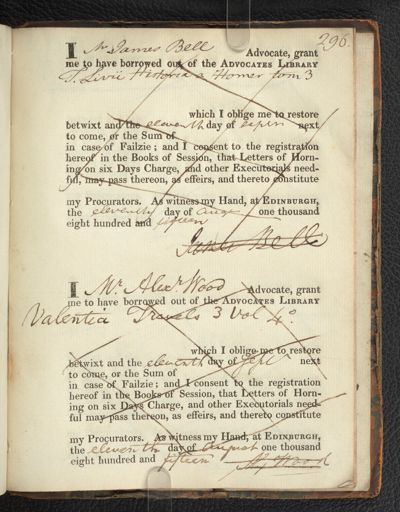 296.
I Mr James Bell Advocate, grant
me to have borrowed out of the ADVOCATES LIBRARY
T. Livii Historia a Homer tom 3
which I oblige me to restore
betwixt and the eleventh day of septr next
to come, or the Sum of
in case of Failzie; and I consent to the registration
hereof in the Books of Session, that Letters of Horn-
ing on six Days Charge, and other Executorials need-
ful, may pass thereon, as effeirs, and thereto constitute
my Procurators. As witness my Hand, at EDINBURGH,
the eleventh day of augt one thousand
eight hundred and fifteen
James Bell
I Mr. Alexr Wood Advocate, grant
me to have borrowed out of the ADVOCATES LIBRARY
Valentia Travels 3 Vol 4o.
which I oblige me to restore
betwixt and the eleventh day of Sept next
to come, or the Sum of
in case of Failzie; and I consent to the registration
hereof in the Books of Session, that Letters of Horn-
ing on six Days Charge, and other Executorials need-
ful may pass thereon, as effeirs, and thereto constitute
my Procurators. As witness my Hand, at EDINBURGH,
the eleventh day of August one thousand
eight hundred and fifteen Wood